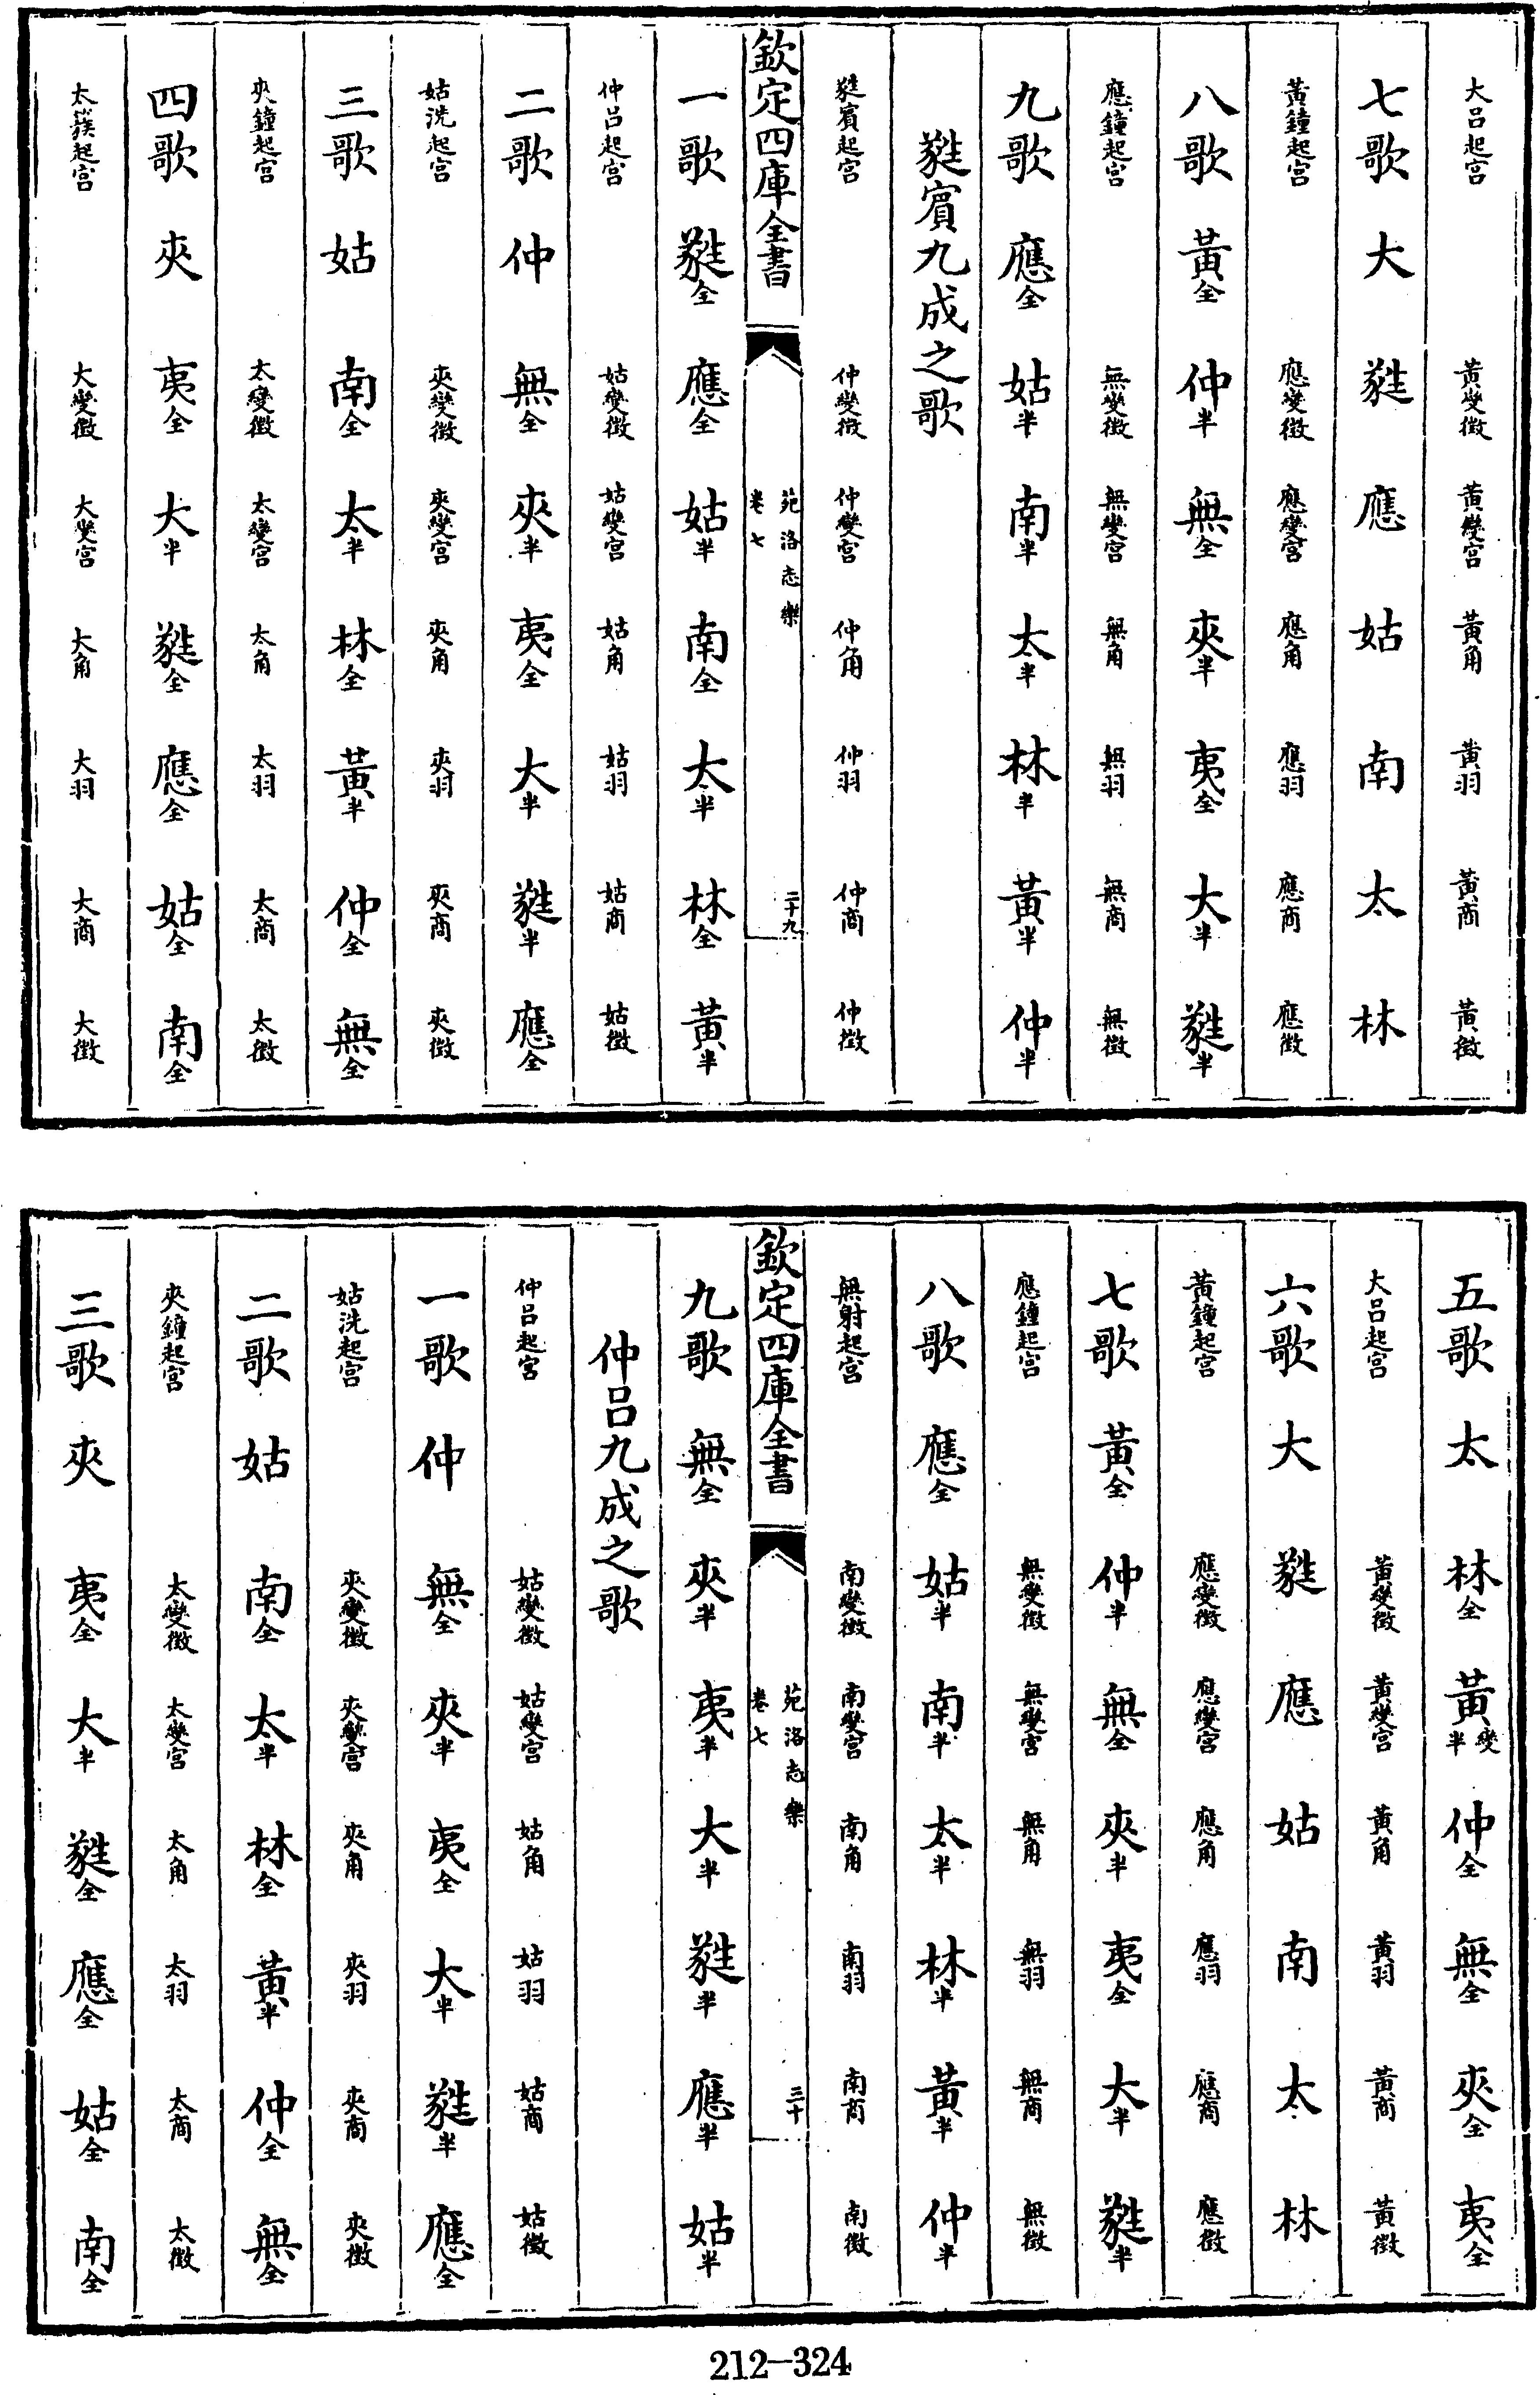 大呂起宫　黃變徵　黃變宫　黃角　黃羽　黃商　黃徵
七歌　大　蕤　應　姑　南　太　林
黃鐘起宫　應變徵　應變宫　應角　應羽　應商　應徵
八歌　黃全　仲半　無全　夾半　夷全　大半　蕤半
應鐘起宫　無變徵　無變宫　無角　無羽　無商　無徵
九歌　應全　姑半　南半　太半　林半　黃半　仲半
蕤賓九成之歌
蕤賓起宫　仲變徵　仲變宫　仲角　仲羽　仲商　仲徵
欽定四庫全書　苑洛志樂　卷七　二十九
一歌　蕤全　應全　姑半　南全　太半　林全　黃半
仲呂起宫　姑變徵　姑變宫　姑角　姑羽　姑商　姑徵
二歌　仲　無全　夾半　夷全　大半　蕤半　應全
姑洗起宫　夾變徵　夾變宫　夾角　夾羽　夾商　夾徵
三歌　姑　南全　太半　林全　黃半　仲全　無全
夾鐘起宫　太變徵　太變宫　太角　太羽　太商　太徵
四歌　夾　夷全　大半　蕤全　應全　姑全　南全
太簇起宫　大變徵　大變宫　大角　大羽　大商　大徵
五歌　太　林全　黃變半　仲全　無全　夾全　夷全
大呂起宫　黃變徵　黃變宫　黃角　黃羽　黃商　黃徵
六歌　大　蕤　應　姑　南　太　林
黃鐘起宫　應變徵　應變宫　應角　應羽　應商　應徵
七歌　黃全　仲半　無全　夾半　夷全　大半　蕤半
應鐘起宫　無變徵　無變宫　無角　無羽　無商　無徵
八歌　應全　姑半　南半　太半　林半　黃半　仲半
無射起宫　南變徵　南變宫　南角　南羽　南商　南徵
欽定四庫全書　苑洛志樂　卷七　三十
九歌　無全　夾半　夷半　大半　蕤半　應半　姑半
仲呂九成之歌
仲呂起宫　姑變徵　姑變宫　姑角　姑羽　姑商　姑徵
一歌　仲　無全　夾半　夷全　大半　蕤半　應全
姑洗起宫　夾變徵　夾變宫　夾角　夾羽　夾商　夾徵
二歌　姑　南全　太半　林全　黃半　仲全　無全
夾鐘起宫　太變徵　太變宫　太角　太羽　太商　太徵
三歌　夾　夷全　大半　蕤全　應全　姑全　南全
212-324